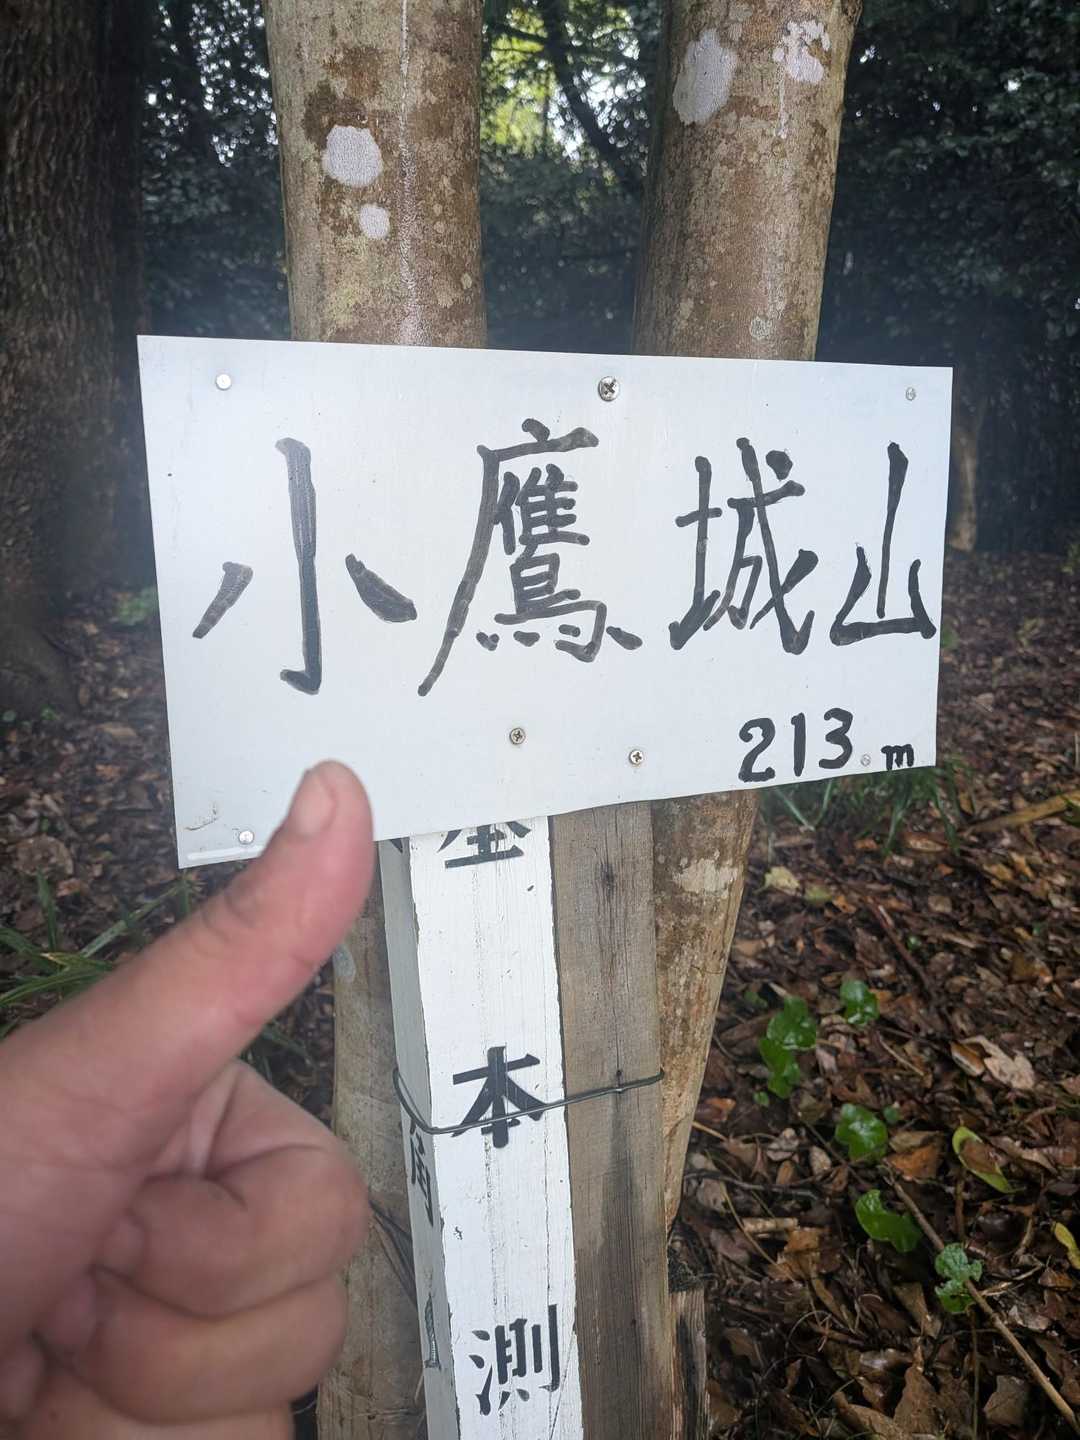 小鷹城山
213.m
基本測